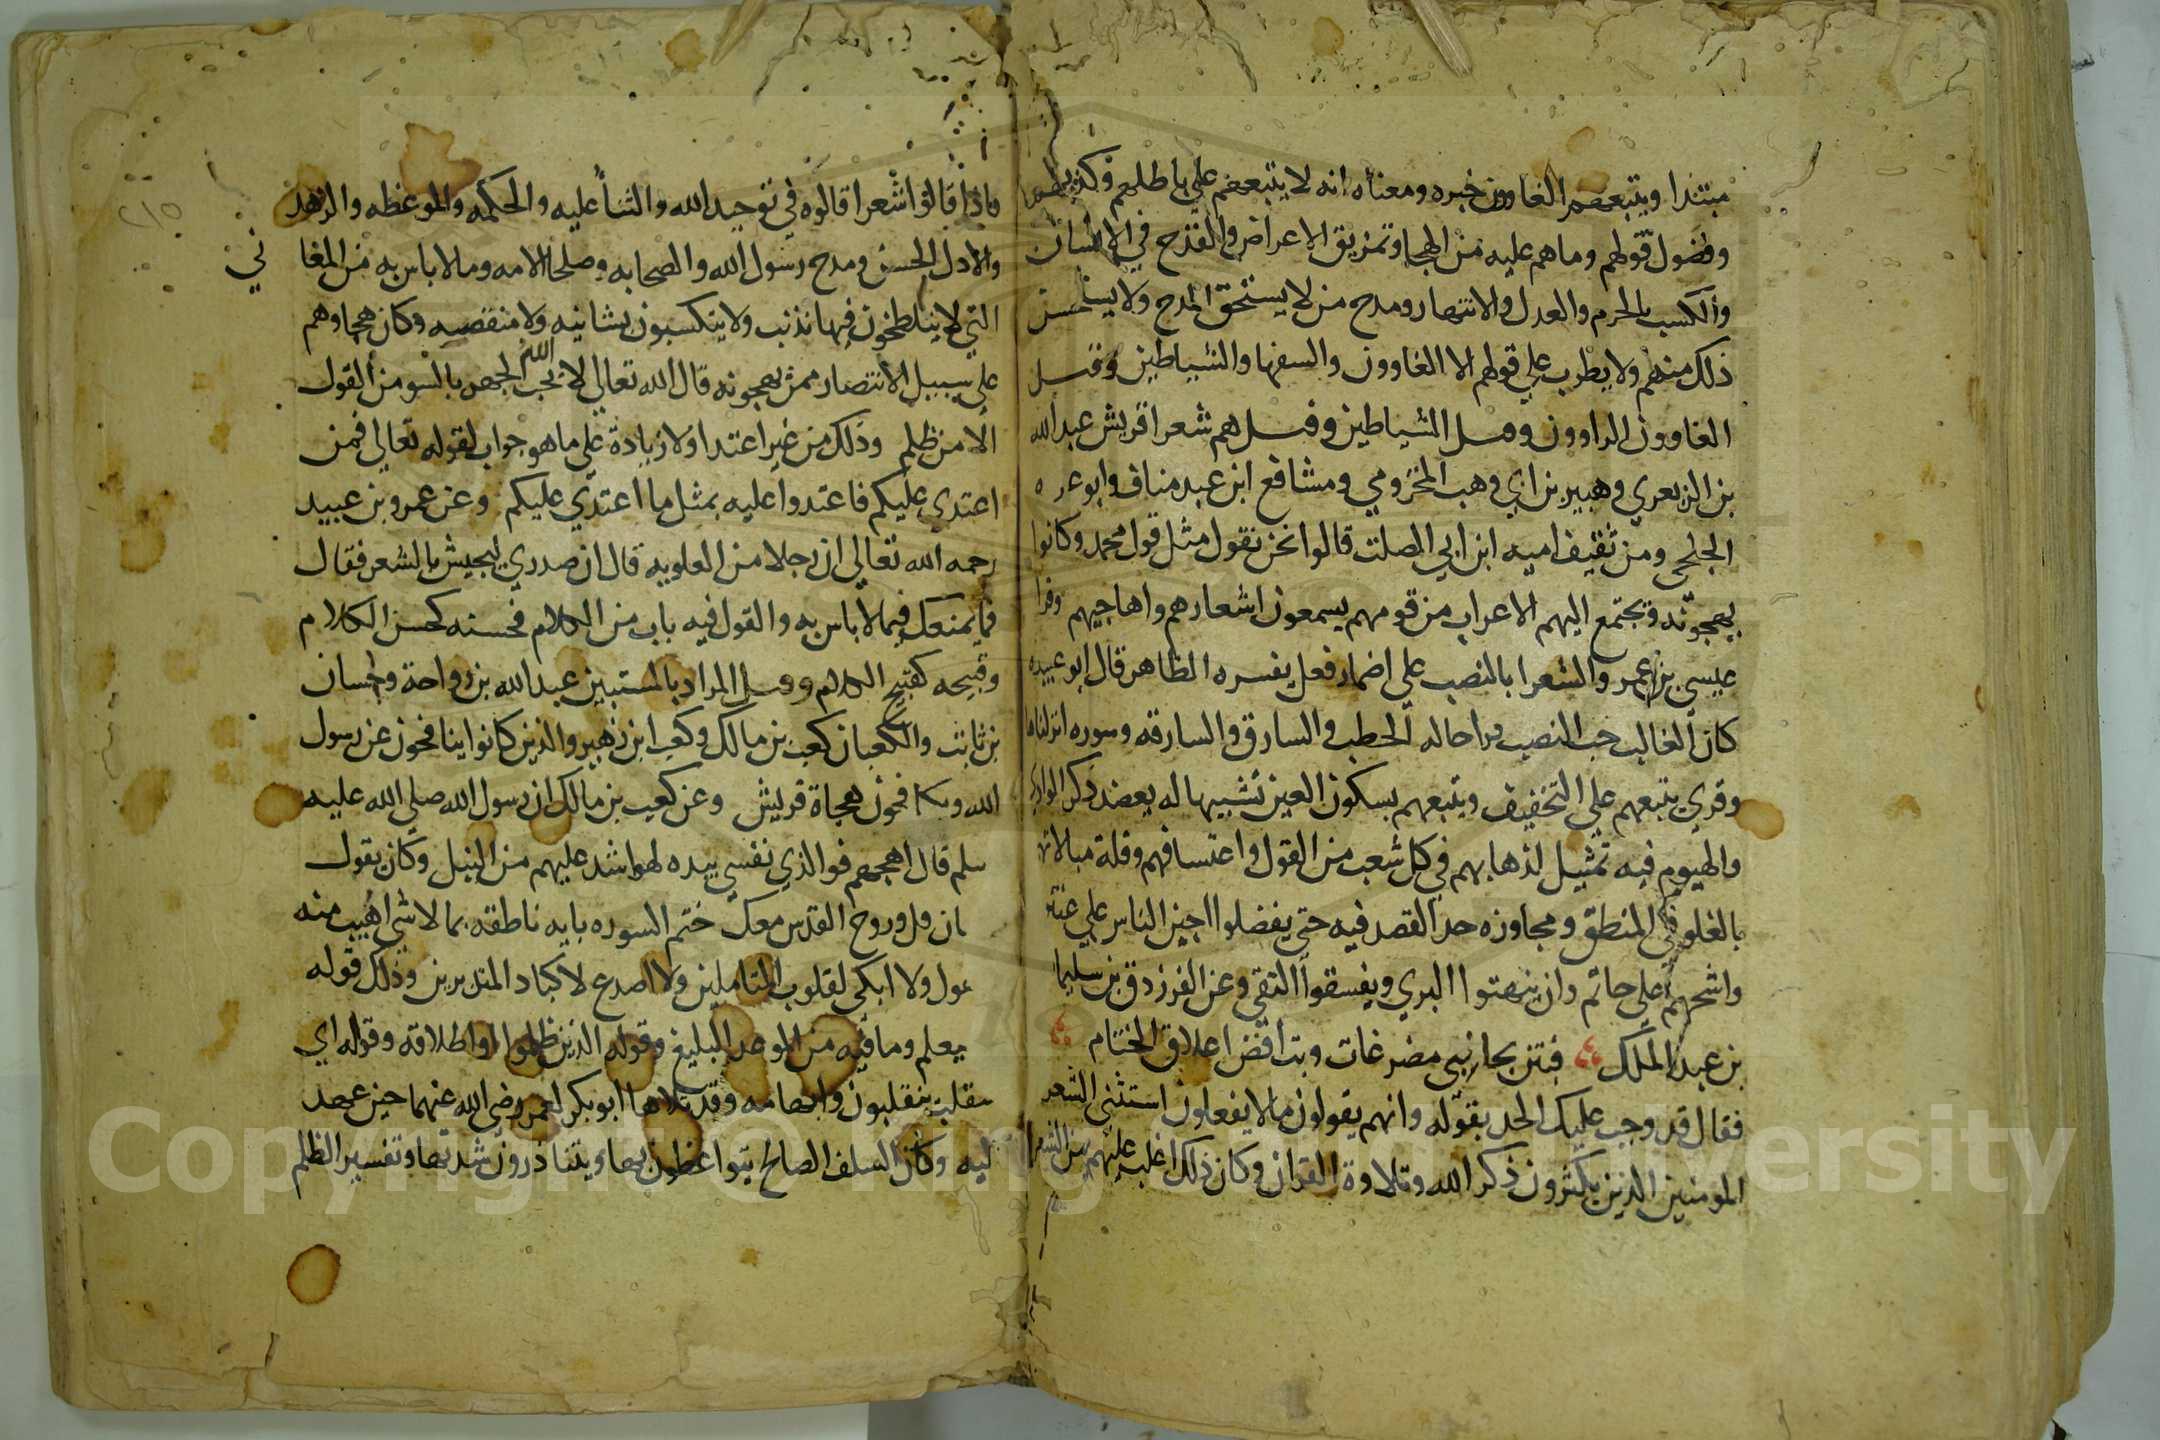 مبتدا ويتبعهم الغاوون خبره ومعناه انه لا يتبعهم علي باطلهم وكذبهم
وفضول قولهم وما هم عليه من الهجا وتمزيق الاعراض والقدح في الانسان
والكسب بالحرم والعدل والانتهار ومدح من لا يستحق المدح ولا يستحسن
ذلك منهم ولا يطرب علي قولهم الا الغاوون والسفها والشياطين وقيل
الغاوون الراوون وقيل الشياطين وقيل هم شعرا قريش عبد الله
بن الزبعري وهبير بن ابي وهب المخزومي ومشافع ابن عبد مناف وابو عزه
الجلحي ومن ثقيف اميه ابن ابي الصلت قالوا نحن نقول مثل قول محمد وكانوا
يهجونه ويجتمع اليهم الاعراب من قومهم يسمعون اشعارهم واهاجيهم وقرا
عيسي بن عمر والشعرا بالنصب علي اضمار فعل يفسره الظاهر قال ابو عبيده
كان الغالب حب النصب قرا حماله الحطب والسارق والسارقه وسوره انزلناها
وقري يتبعهم علي التخفيف ويتبعهم بسكون العين تشبيها له بعضد ذكر الوادي
والهيوم فيه تمثيل لذهابهم في كل شعب من القول واعتسافهم وقلة مبالاتهم
بالغلو في المنطق ومجاوزه حد القصد فيه حتي يفضلوا اجبن الناس علي عنتره
واشحهم علي حاتم وان يبهتوا البري ويفسقوا التقي وعن الفرزدق بن سليمان
بن عبد الملك فبتن بجانبي مضرعات وبت افض اغلاق الختام
فقال قد وجب عليك الحد بقوله وانهم يقولون ما لا يفعلون استثني الشعر
المومنين الذين يكثرون ذكر الله وتلاوة القران وكان ذلك اغلب عليهم من الشعر
واذا قالوا شعرا قالوه في توحيد الله والثنا عليه والحكمه والموعظه والزهد
والادل الحسن ومدح رسول الله والصحابه وصلحا الامه وما لا باس به من المعا
ني
التي لا يتلطخون فيها بذنب ولا يتكسبون بشانيه ولا منقصه وكان هجاوهم
علي سبيل الانتصار ممن يهجونه قال الله تعالي لا يحب الله الجهر بالسو من القول
الا من ظلم وذلك من غير اعتدا ولا زيادة علي ما هو جواب لقوله تعالي فمن
اعتدي عليكم فاعتدوا عليه بمثل ما اعتدي عليكم وعن عمرو بن عبيد
رحمه الله تعالي ان رجلا من العلويه قال ان صدري ليجيش بالشعر فقال
فما يمنعك فيما لا باس به والقول فيه باب من الكلام فحسنه كحسن الكلام
وقبيحه كقبيح الكلام وقيل المراد بالمستبين عبد الله بن رواحة وحسان
بن ثابت والكعبان كعب بن مالك وكعب ابن زهير والذين كانوا ينافحون عن رسول
الله ويكافحون هجاة قريش وعن كعب بن مالك ان رسول الله صلي الله عليه
سلم قال اهجهم فوالذي نفسي بيده لهو اشد عليهم من النبل وكان يقول
ان قل وروح القدس معك ختم السوره بايه ناطقه بما لا شي اهيب منه
هول ولا ابكي لقلوب المتاملين ولا اصدع لاكباد المتدبرين وذلك قوله
يعلم وما فيه من الوعيد البليغ وقوله الذين ظلموا واطلاقه وقوله اي
منقلب ينقلبون وابهامه وقد تلاها ابو بكر لعمر رضي الله عنهما حين عهد
ليه وكان السلف الصالح يتواعظون بها ويتناذرون شدتها وتفسير الظلم